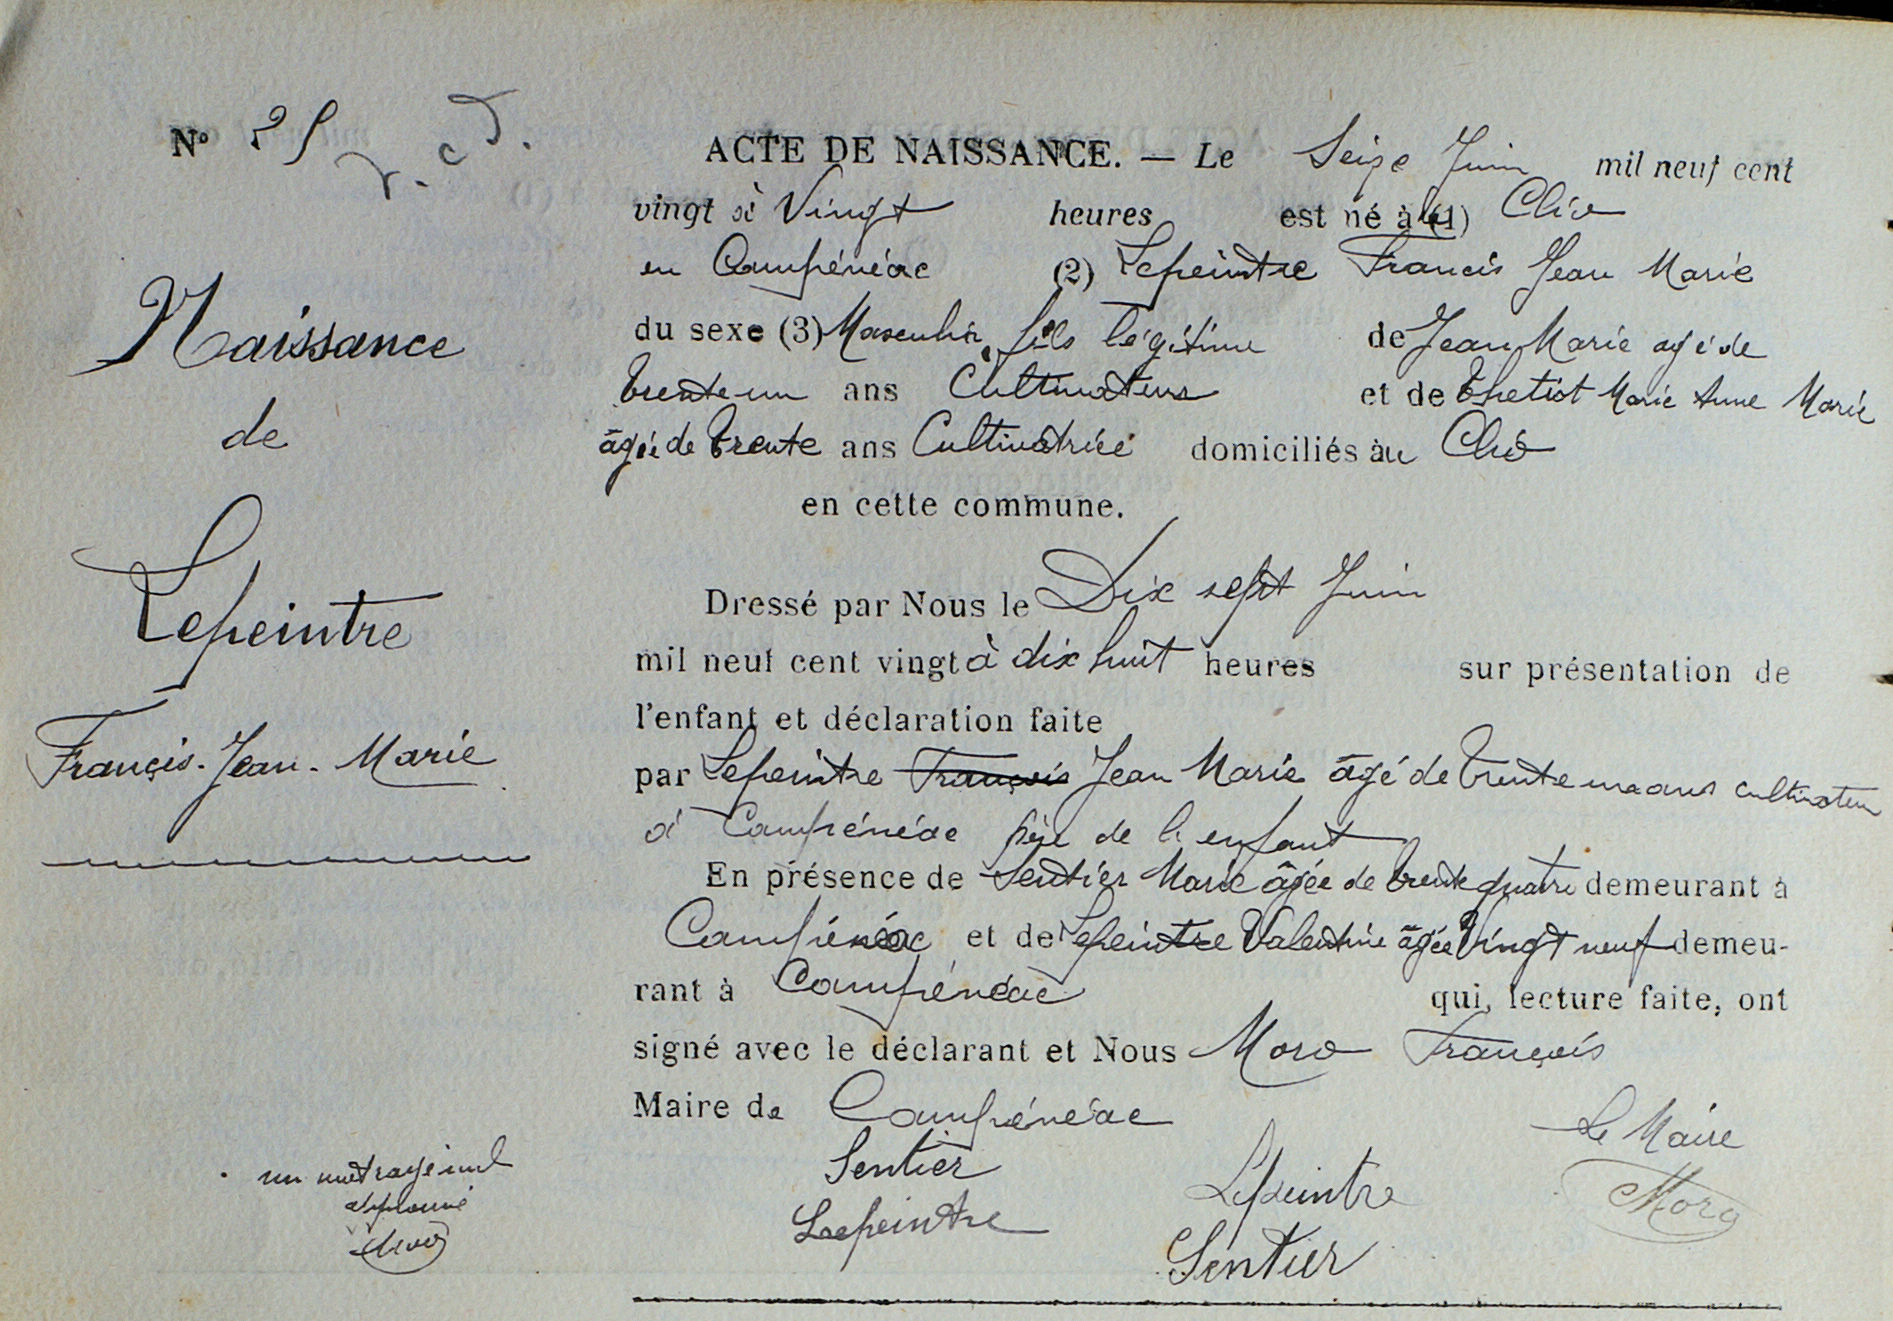 N° 25
r. c. d.
ACTE DE NAISSANCE. — Le Seize Juin mil neuf cent
vingt à Vingt heures est né à (1) Clio
en Campénéac (2) Lepeintre Francis Jean Marie
du sexe (3) Masculin, fils légitime de Jean Marie agé de
trente un ans Cultivateur et de Thetiot Marie Anne Marie
âgée de trente ans Cultivatrice domiciliés àu Clio
en cette commune.
Naissance
de
Lepeintre
Françis-Jean-Marie
Dressé par Nous le Dix sept Juin
mil neuf cent vingt à dix huit heures sur présentation de
l'enfant et déclaration faite
par Lepeintre François Jean Marie âgé de trente un ans cultivateur
à Campénéac père de l'enfant
En présence de Sentier Marie âgée de trente quatre demeurant à
Campénéac et de Lepeintre Valentine âgée Vingt neuf demeu-
rant à Campénéac qui, lecture faite, ont
signé avec le déclarant et Nous Moro François
Maire de Campénéac
Le Maire
Moro
Sentier
Lepeintre
Lepeintre
Sentier
un mot rayé nul
approuvé
Moro